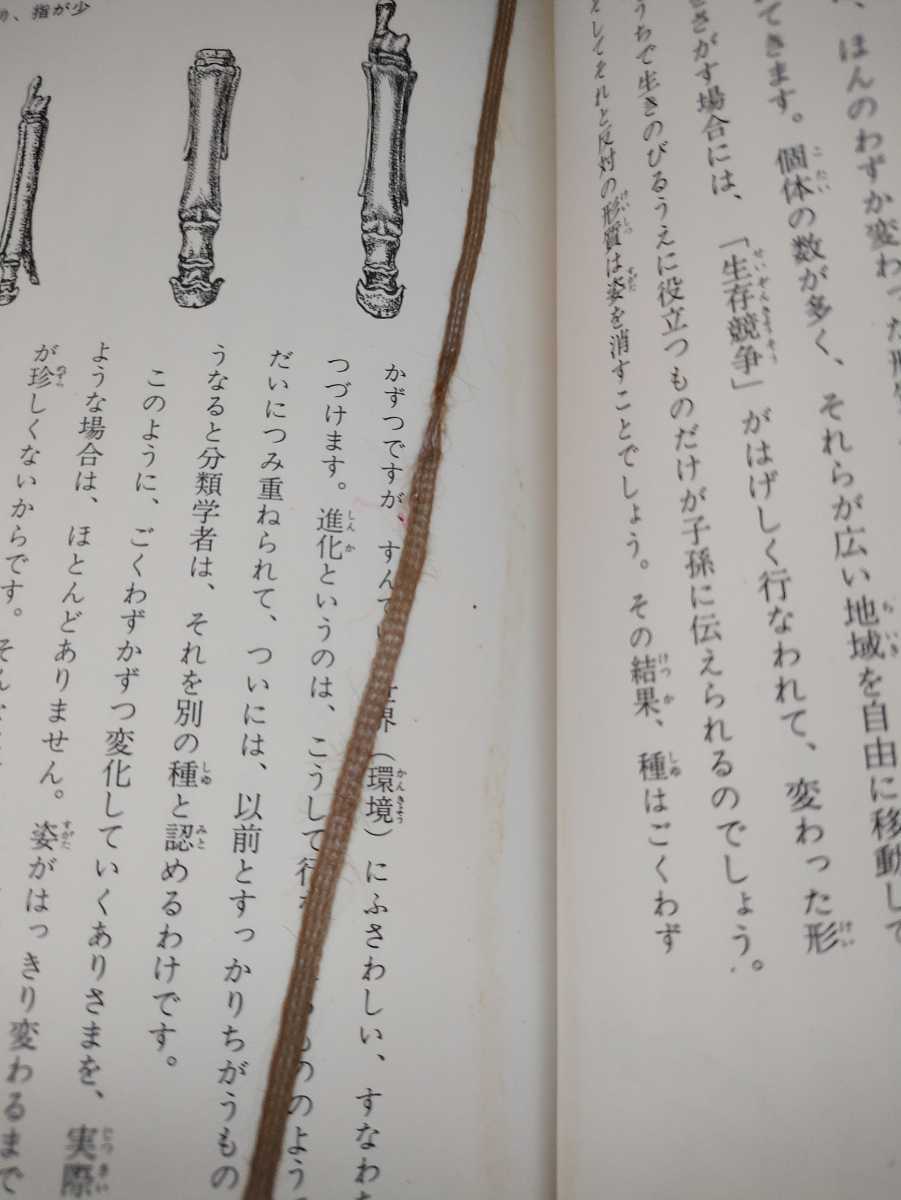 、ほんのわずか変わった形
てきます。個体の数が多く、それらが広い地域を自由に移動して
さがす場合には、「生存競争」がはげしく行なわれて、変わった形
うちで生きのびるうえに役立つものだけが子孫に伝えられるのでしょう。
そしてそれと反対の形質は姿を消すことでしょう。その結果、種はごくわず
かずつですが、すんで 世界（環境）にふさわしい、すなわち
つづけます。進化というのは、こうして行な るもののよう
だいにつみ重ねられて、ついには、以前とすっかりちがうもの
うなると分類学者は、それを別の種と認めるわけです。
このように、ごくわずかずつ変化していくありさまを、実際
ような場合は、ほとんどありません。姿がはっきり変わるまで
が珍しくないからです。そん
、指が少